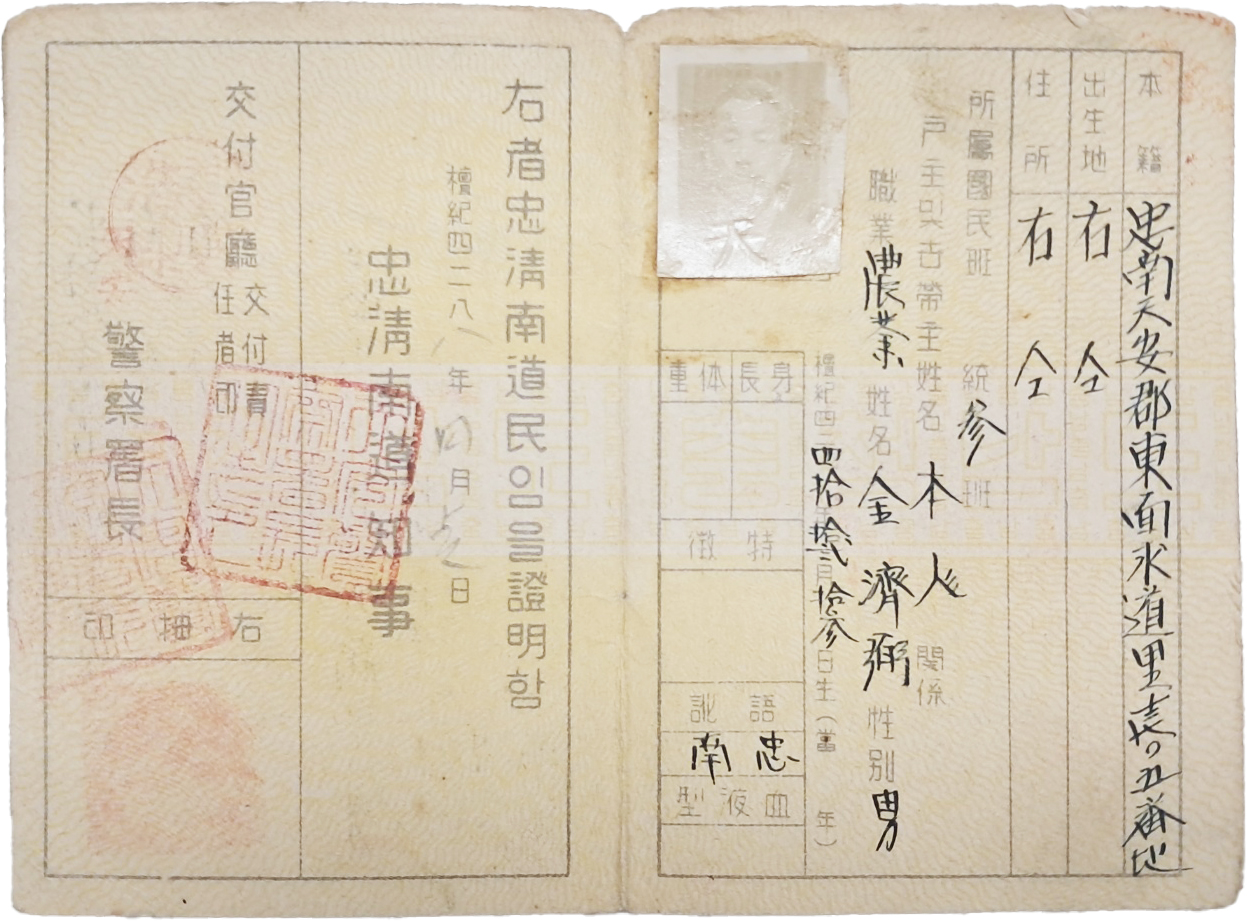 本籍 忠南天安郡東面水道里壱〇五番地
出生地 右仝
住所 右仝
所屬國民班 統參班
戶主 및 古帶主姓名 本人 關係
職業 農業 姓名 金濟弼 性別 男
檀紀四二四拾年拾貳月拾參日生(當 年)
身長 体重
特徵
語訛
忠南
血液型
右者忠淸南道民임을證明함
檀紀四二八 年 四月 日
忠淸南道知事
交付官廳 交付責任者印
警察署長
右拇印